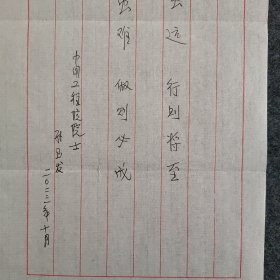 远 行则将至
虽难 做则必成
中国工程院院士
二〇二三年十月